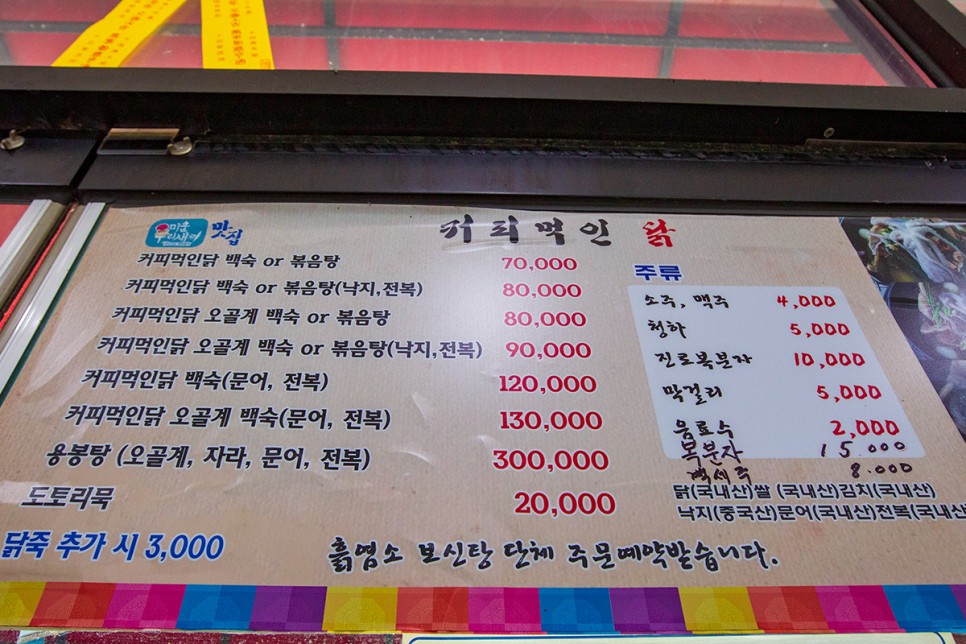 미운
우리새끼
맛집
커피먹인 닭
커피먹인닭 백숙 or 볶음탕 70,000
커피먹인닭 백숙 or 볶음탕(낙지,전복) 80,000
커피먹인닭 오골계 백숙 or 볶음탕 80,000
커피먹인닭 오골계 백숙 or 볶음탕(낙지,전복) 90,000
커피먹인닭 백숙(문어, 전복) 120,000
커피먹인닭 오골계 백숙(문어, 전복) 130,000
용봉탕 (오골계, 자라, 문어, 전복) 300,000
도토리묵 20,000
닭죽 추가 시 3,000
흙염소 보신탕 단체 주문예약받습니다.
주류
소주, 맥주 4,000
청하 5,000
진로복분자 10,000
막걸리 5,000
음료수 2,000
복분자 15.000
백세주 8.000
닭(국내산)쌀 (국내산)김치(국내산)
낙지(중국산)문어(국내산)전복(국내산